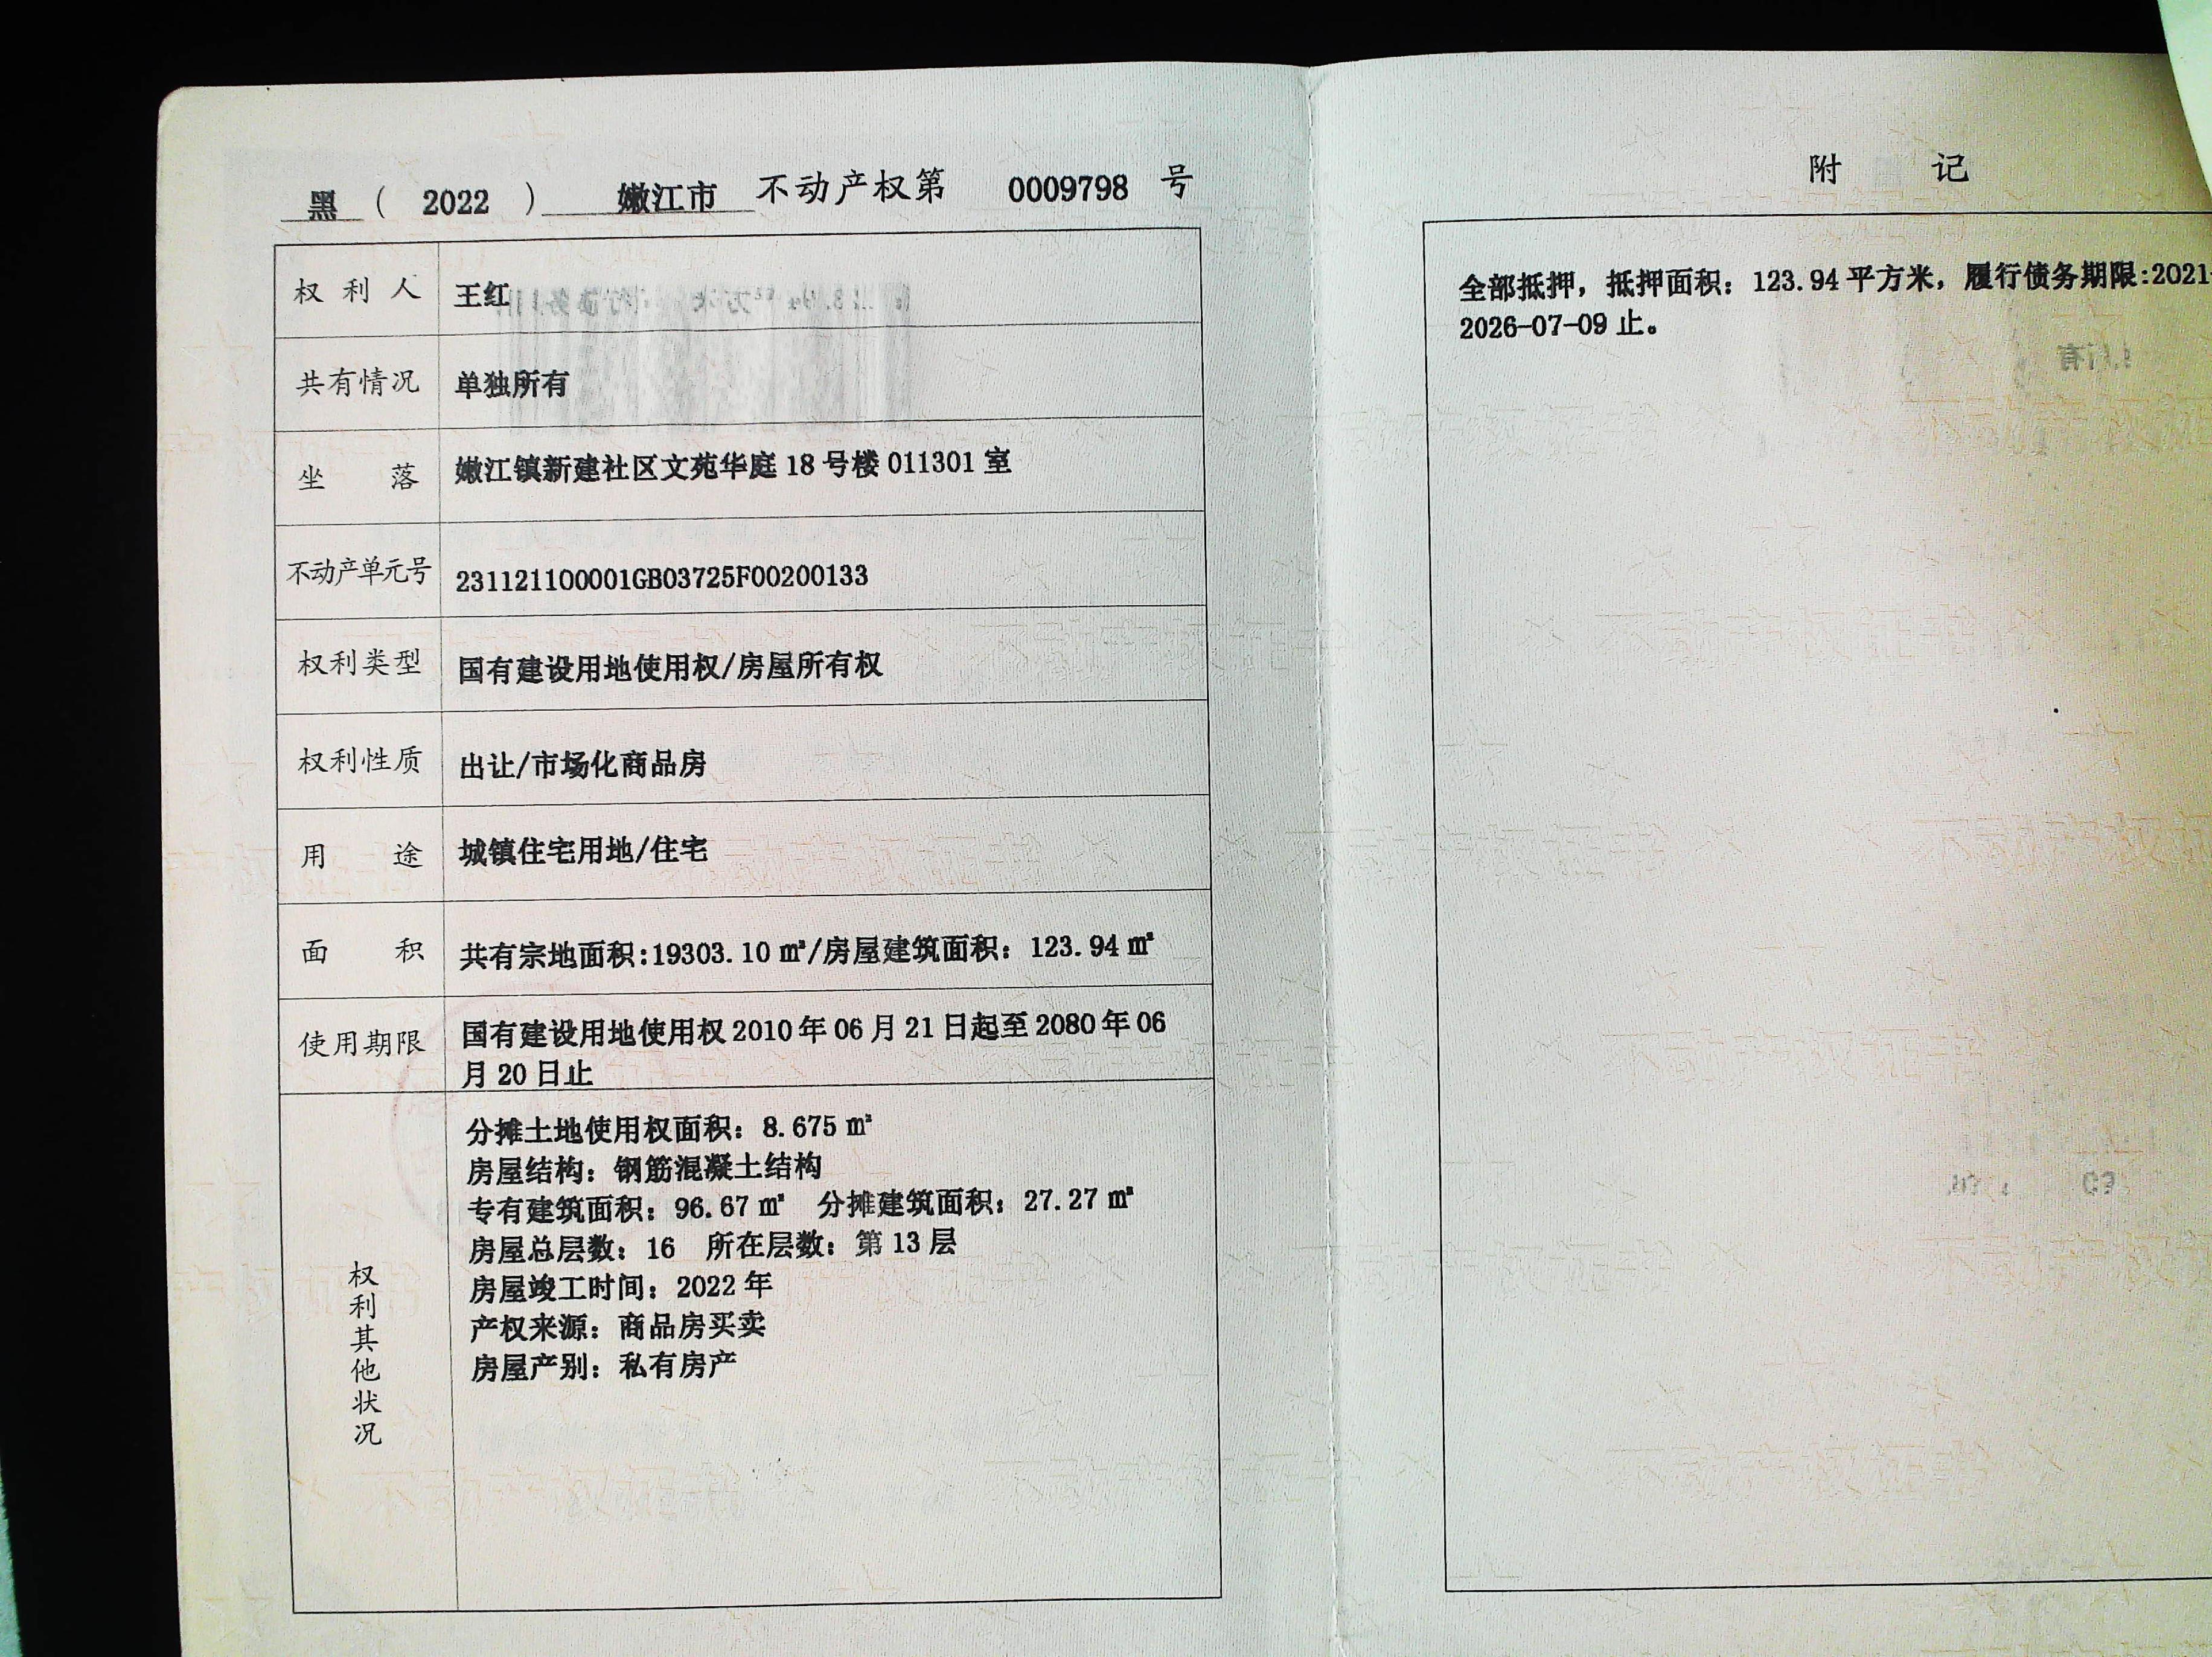 黑 ( 2022 ) 嫩江市 不动产权第 0009798 号
权利人 王红
共有情况 单独所有
坐落 嫩江镇新建社区文苑华庭 18 号楼 011301 室
不动产单元号 231121100001GB03725F00200133
权利类型 国有建设用地使用权/房屋所有权
权利性质 出让/市场化商品房
用途 城镇住宅用地/住宅
面积 共有宗地面积:19303.10 ㎡/房屋建筑面积：123.94 ㎡
使用期限 国有建设用地使用权 2010 年 06 月 21 日起至 2080 年 06
月 20 日止
权利其他状况
分摊土地使用权面积：8.675 ㎡
房屋结构：钢筋混凝土结构
专有建筑面积：96.67 ㎡ 分摊建筑面积：27.27 ㎡
房屋总层数：16 所在层数：第 13 层
房屋竣工时间：2022 年
产权来源：商品房买卖
房屋产别：私有房产
附记
全部抵押，抵押面积：123.94 平方米，履行债务期限:2021
2026-07-09 止。